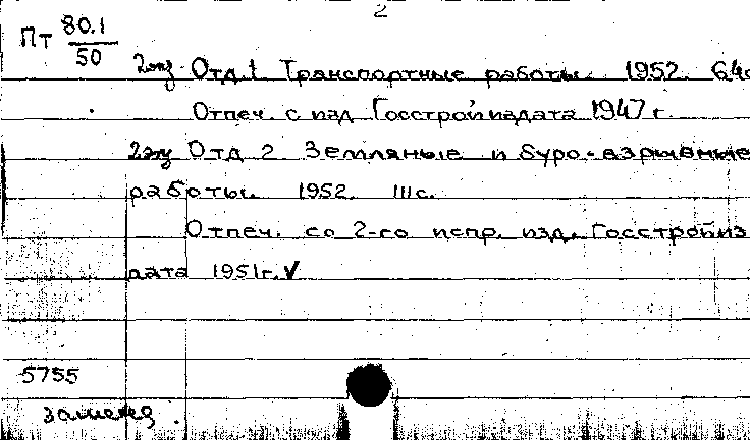 2
Пт 80.1
50
2экз Отд.1. Транспортные работы. 1952. 64с
Отпеч. с изд. Госстройиздата 1947 г.
2экз Отд 2 Земляные и буро-взрывные
работы. 1952. 111с.
Отпеч. со 2-го испр. изд. Госстройиз
дата 1951г. V
5755